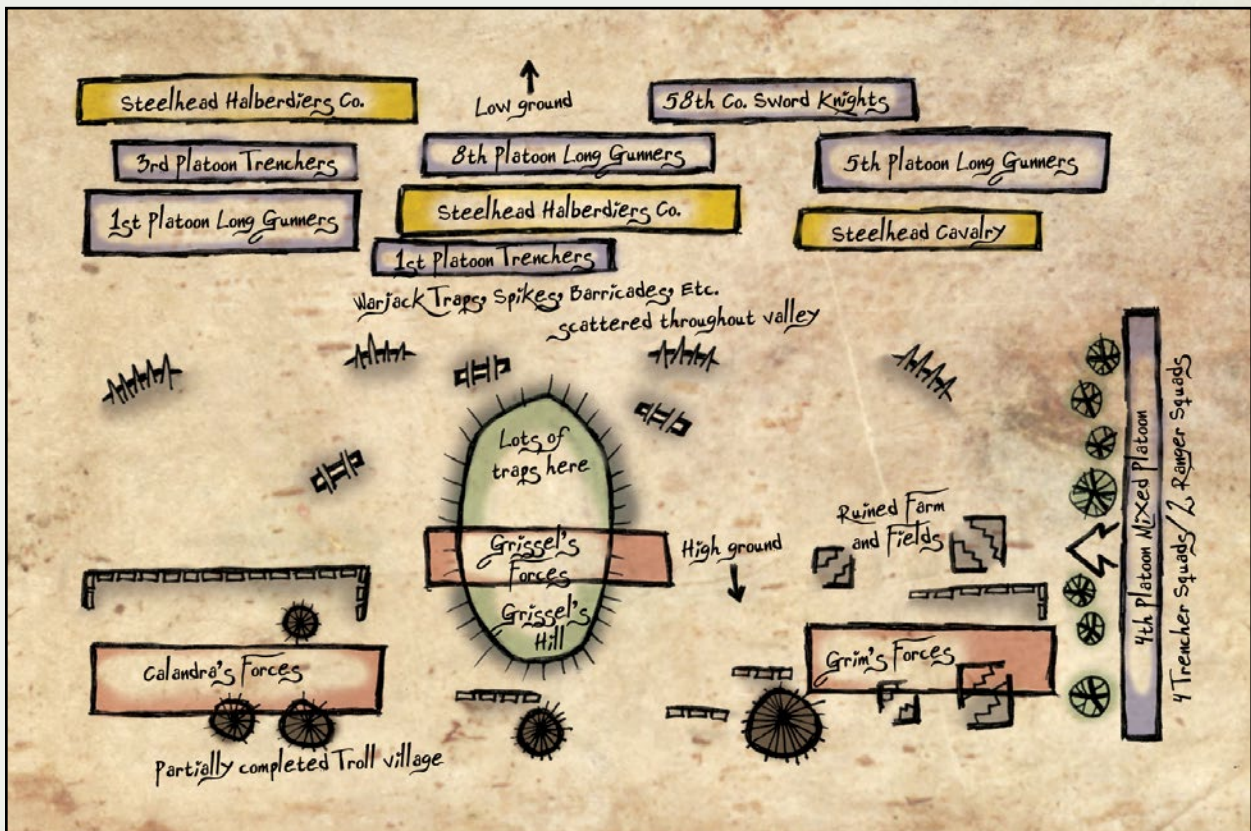 Steelhead Halberdiers Co.
Low ground
58th Co. Sword Knights
3rd Platoon Trenchers
8th Platoon Long Gunners
5th Platoon Long Gunners
1st Platoon Long Gunners
Steelhead Halberdiers Co.
Steelhead Cavalry
1st Platoon Trenchers
Warjack Traps, Spikes, Barricades, Etc.
scattered throughout valley
Lots of
traps here
Ruined Farm
and Fields
Grissel's
Forces
High ground
Grissel's
Hill
Calandra's Forces
Grim's Forces
Partially completed Troll village
4th Platoon Mixed Platoon
4 Trencher Squads/ 2 Ranger Squads